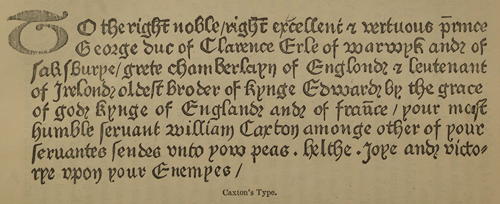 TO the right noble/right excellent & vertuous prince
George duc of Clarence Erle of warwyk and of
salisburye/ grete chamberlayn of Englond & leutenant
of Irelond oldest broder of kynge Edward by the grace
of god kynge of England and of fraūce / your most
humble seruant william Caxton amonge other of your
seruantes sendes vnto yow peas . helthe . Joye and victo-
rye vpon your Enemyes /
Caxton's Type.